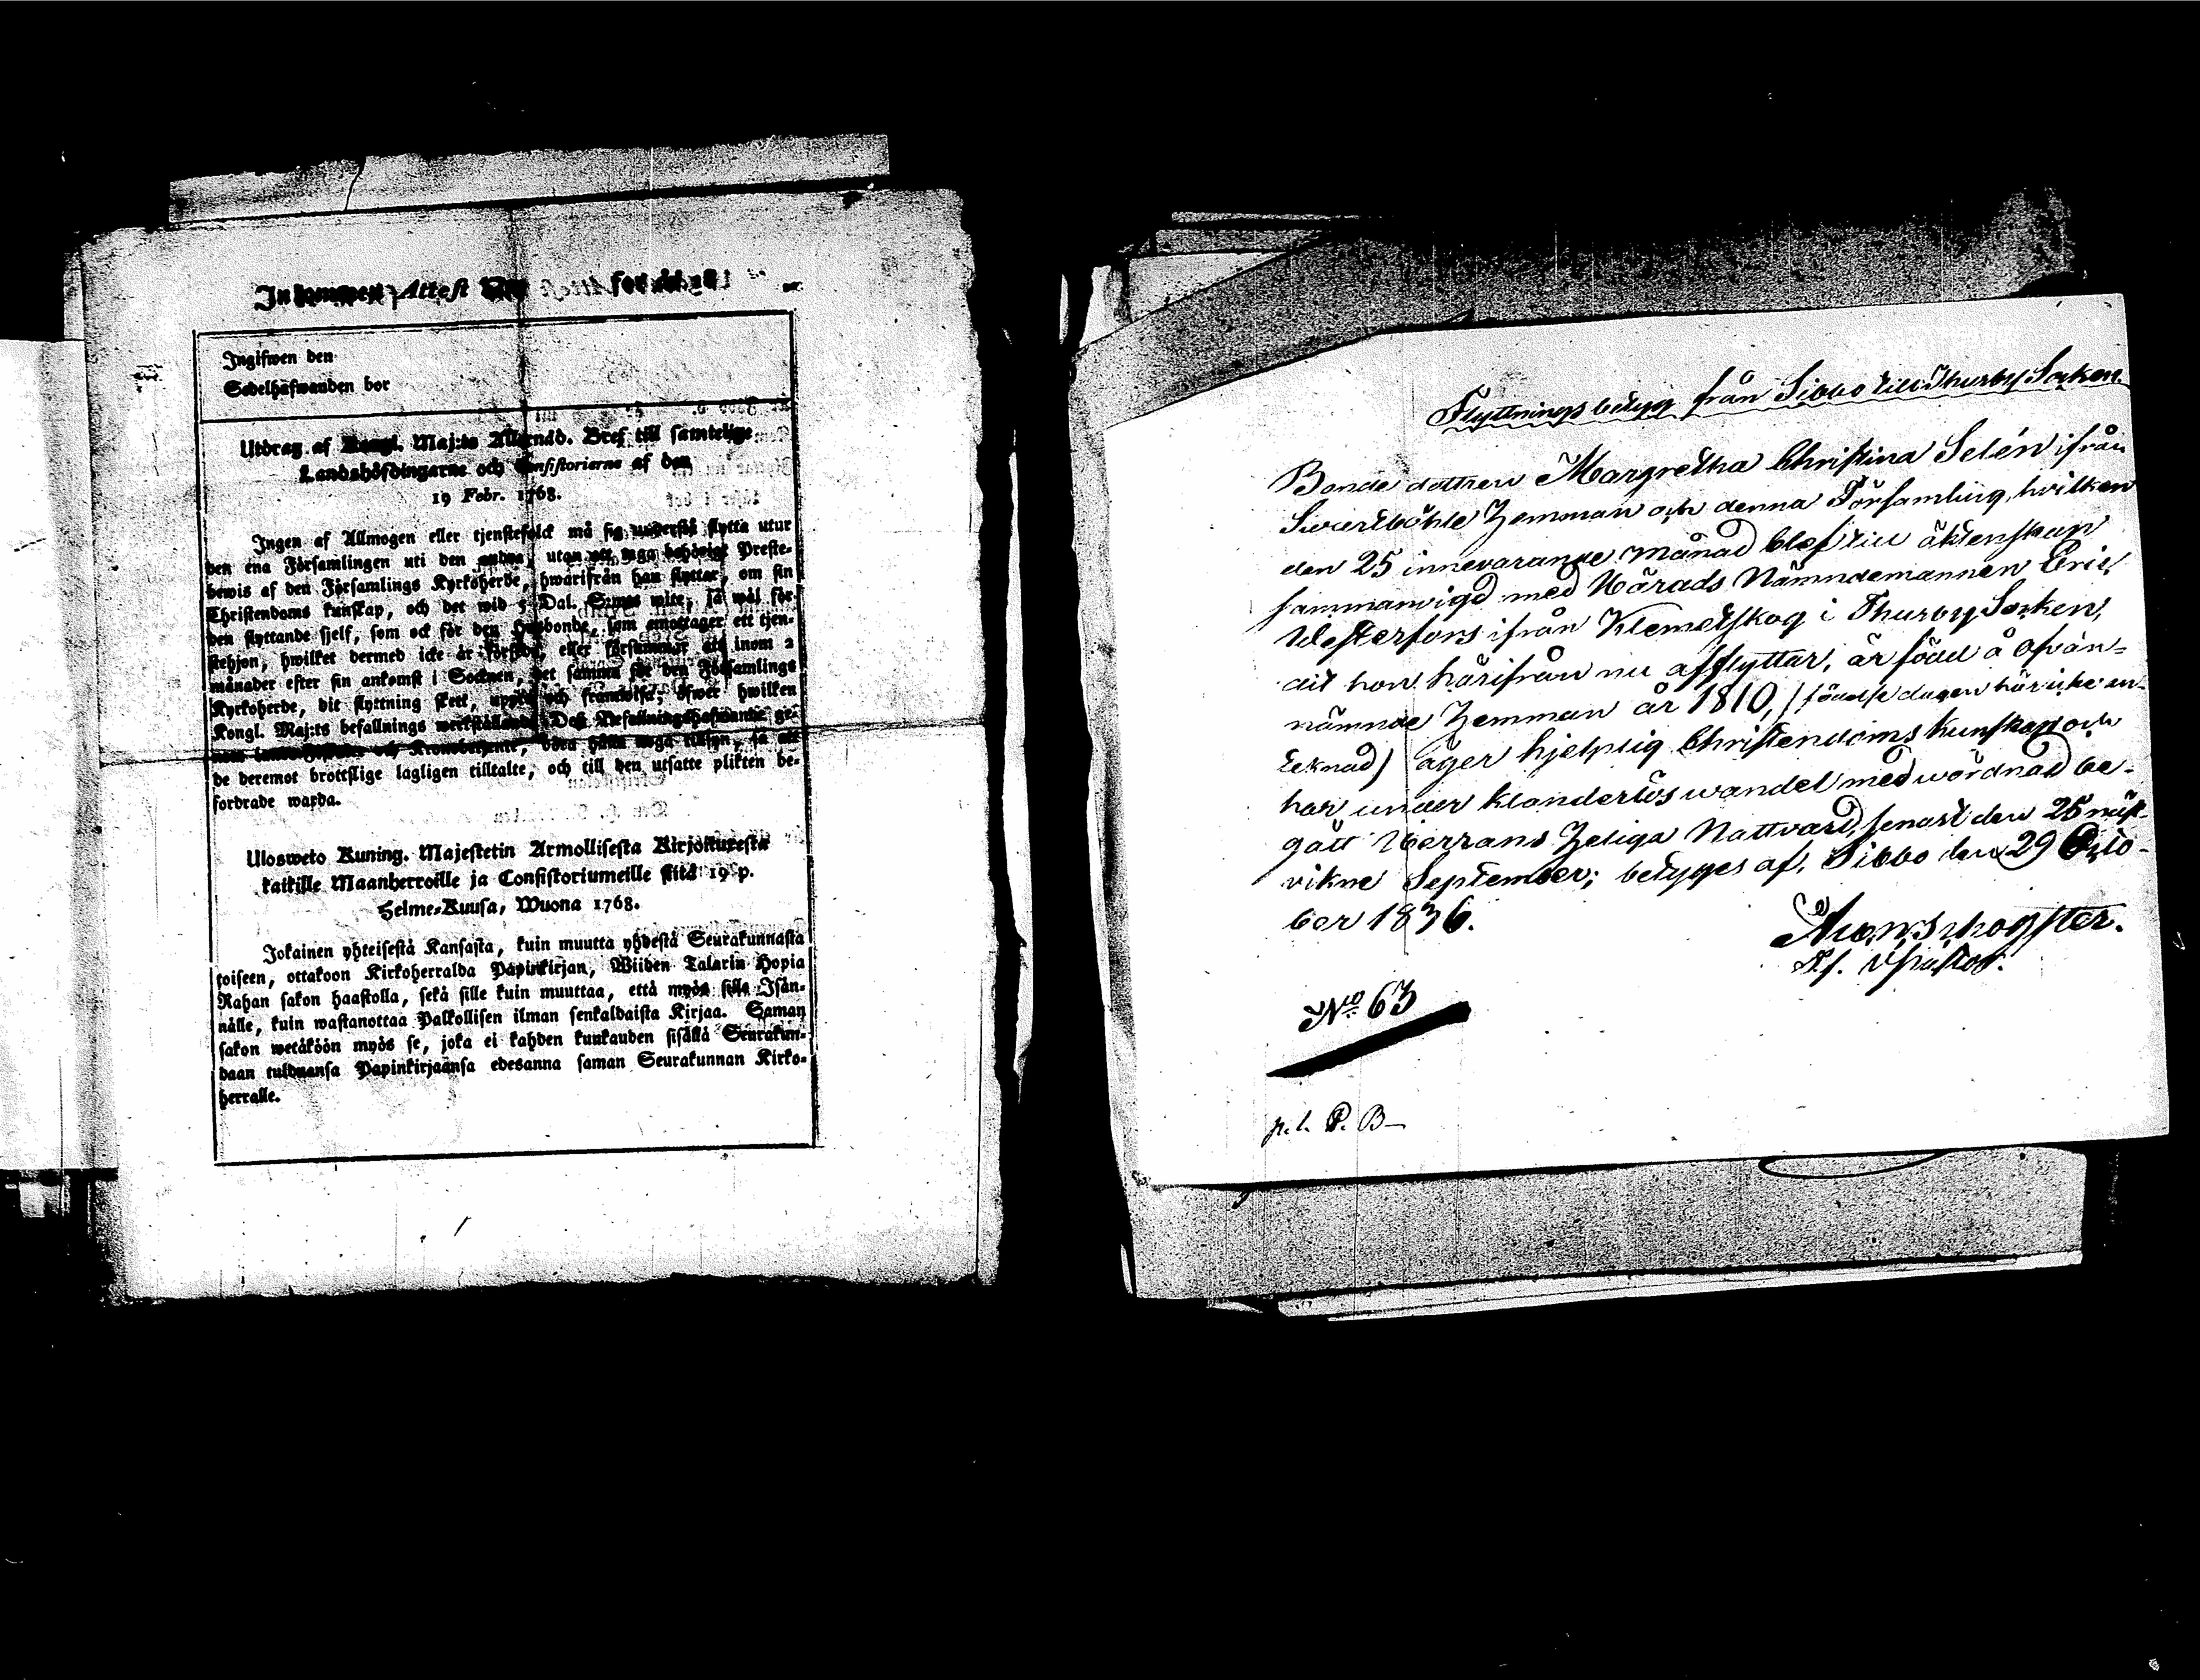 Inkommen Attest
Ingifwen den
Sedelhafwanden bor
Utdrag af Kongl. Maj:ts Allernåd. Bref till samtelige
Landshöfdingarne och Consistorierne af den
19 Febr. 1768.
Ingen af Allmogen eller tjenstefolck må sig understå flytta utur
den ena Församlingen uti den andra, utan att äga behörigt Preste-
bewis af den Församlings Kyrkoherde, hwarifrån han flyttar, om sin
Christendoms kunskap, och det wid 5 Dal. S:mts wite, så wäl för
den flyttande sjelf, som ock för den Husbonde, som emottager ett tjen-
stehjon, hwilket dermed icke är försedt, eller försummar att inom 2
månader efter sin ankomst i Socknen, det samma för den Församlings
Kyrkoherde, dit flyttning skett, uppte och framwisa; öfwer hwilken
Kongl. Maj:ts befallnings werkställande Dess Befallningshafwande ge-
nom och Kronobetjente, böra hafwa noga tillsyn, så att
de deremot brottslige lagligen tilltalte, och till den utsatte plikten be-
fordrade warda.
Ulosweto Kuning. Majestetin Armollisesta Kirjoituxesta
kaikille Maanherroille ja Consistoriumeille siitä 19 p.
Helme-Kuusa, Wuona 1768.
Jokainen yhteisestä Kansasta, kuin muutta yhdestä Seurakunnasta
toiseen, ottakoon Kirkoherralda Papinkirjan, Wiiden Talarin Hopia
Rahan sakon haastolla, sekä sille kuin muuttaa, että myös sille Isän-
nälle, kuin wastanottaa Palkollisen ilman senkaldaista Kirjaa. Saman
sakon wetäköön myös se, joka ei kahden kuukauden sisällä Seurakun-
daan tulduansa Papinkirjaansa edesanna saman Seurakunnan Kirko-
herralle.
Flyttnings betyg från Sibbo till Thusby Socken.
Bonde dottren Margretha Christina Selén ifrån
Swartböhle Hemman och denna Församling, hvilken
den 25 innevarande månad blef till äktenskap
sammanvigd med Härads Nämndemannen Eric
Westerfors ifrån Klemetskog i Thusby Socken,
dit hon härifrån nu afflyttar, är född å ofvan-
nämnde Hemman år 1810, (födelse dagen här icke an-
teknad) äger hjelplig Christendoms kunskap och
har under klanderlös wandel med wördnad be-
gått Herrans Heliga Nattvard, senast den 25 näst-
vikne September; betyges af, Sibbo den 29 Octo-
ber 1836.
Tf. Pastor.
No 63
p. l. P. B—